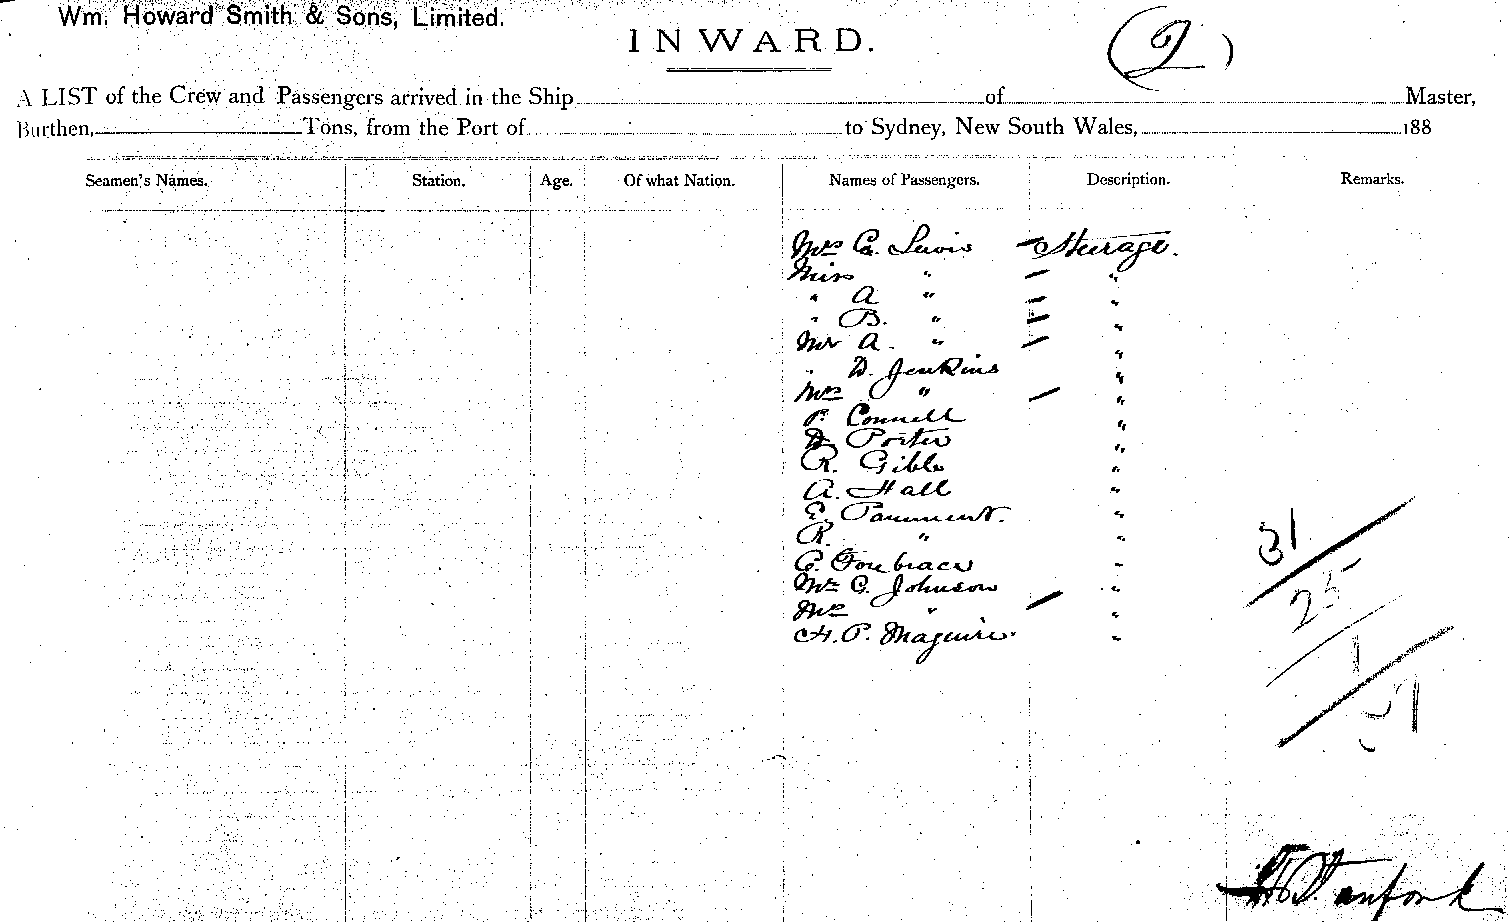 Wm. Howard Smith & Sons, Limited.
INWARD.
(2)
A LIST of the Crew and Passengers arrived in the Ship of Master,
Burthen, Tons, from the Port of to Sydney, New South Wales, 188
Seamen's Names. Station. Age. Of what Nation. Names of Passengers. Description. Remarks.
Mrs C. Lewis — Steerage.
Miss " — "
" A " — "
" B. " — "
Mr A. " — "
" D. Jenkins "
Mrs " — "
P. Connell "
D. Porter "
R. Gibbs "
A. Hall "
E. Parment. "
R. " "
C. "
Mr C. Johnson "
Mrs " — "
H. P. Maguire. "
31
25
1